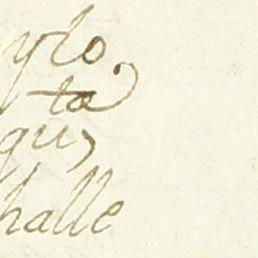 ylo,
ta
qu,
halle